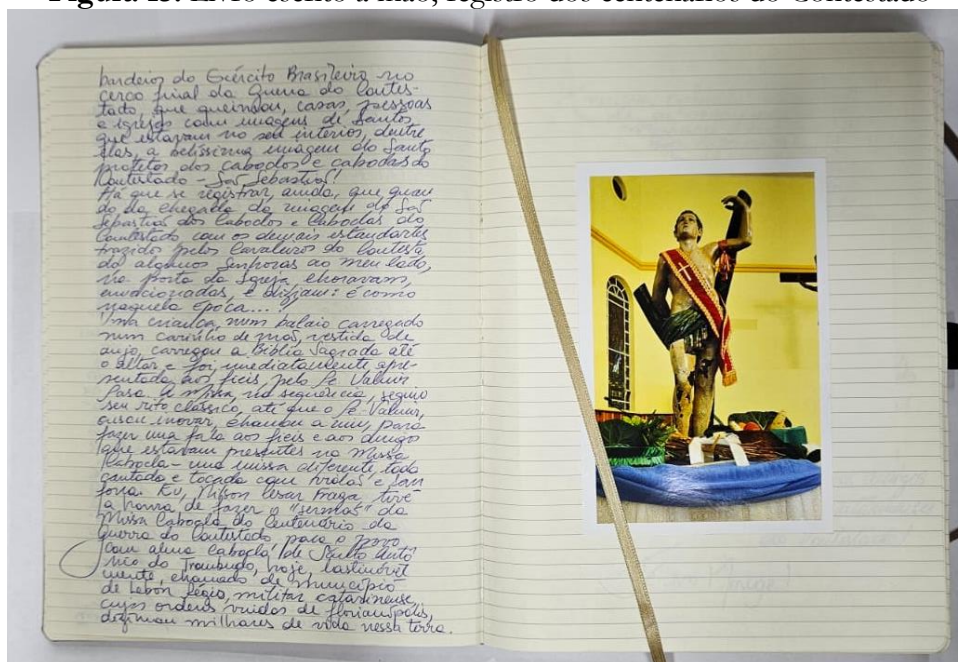 Figura 13: Livro escrito à mão, registro dos centenários do Contestado
bardeios do Exército Brasileiro no
cerco final da Guerra do Contes-
tado, que queimou, casas, pessoas
e igrejas com imagens de Santos
que estavam no seu interior, dentre
elas, a belíssima imagem do Santo
protetor dos caboclos e caboclas do
Contestado - São Sebastião!
Há que se registrar, ainda, que quan
do da chegada da imagem de São
Sebastião dos Caboclos e Caboclas do
Contestado, com os demais estandartes
trazido pelos Cavaleiros do Contesta
do algumas Senhoras ao meu lado,
na porta da Igreja choravam,
emocionadas, e diziam: é como
naquela época...!
Uma criança, num balaio carregado
num carrinho de mão, vestida de
anjo, carregou a Bíblia Sagrada até
o altar e foi imediatamente apre-
sentada aos fiéis, pelo Pe. Valmir
a missa, na sequência, seguiu
seu rito clássico, até que o Pe. Valmir,
inovar, chamou a mim, para
fazer uma fala aos fiéis e aos
que estavam presentes na Missa
Cabocla - uma missa diferente toda
cantada e tocada com violas e
Eu, Nilson Cesar Fraga, tive
a honra de fazer o "sermão" da
Missa Cabocla do Centenário da
Guerra do Contestado para o povo
com alma cabocla de Santo Antô
nio do Trombudo, hoje, lastimavel
mente, chamado de município
de Lebon Régis, militar catarinense,
cujas ordens vindas de Florianópolis,
dizimou milhares de vida nessa terra.